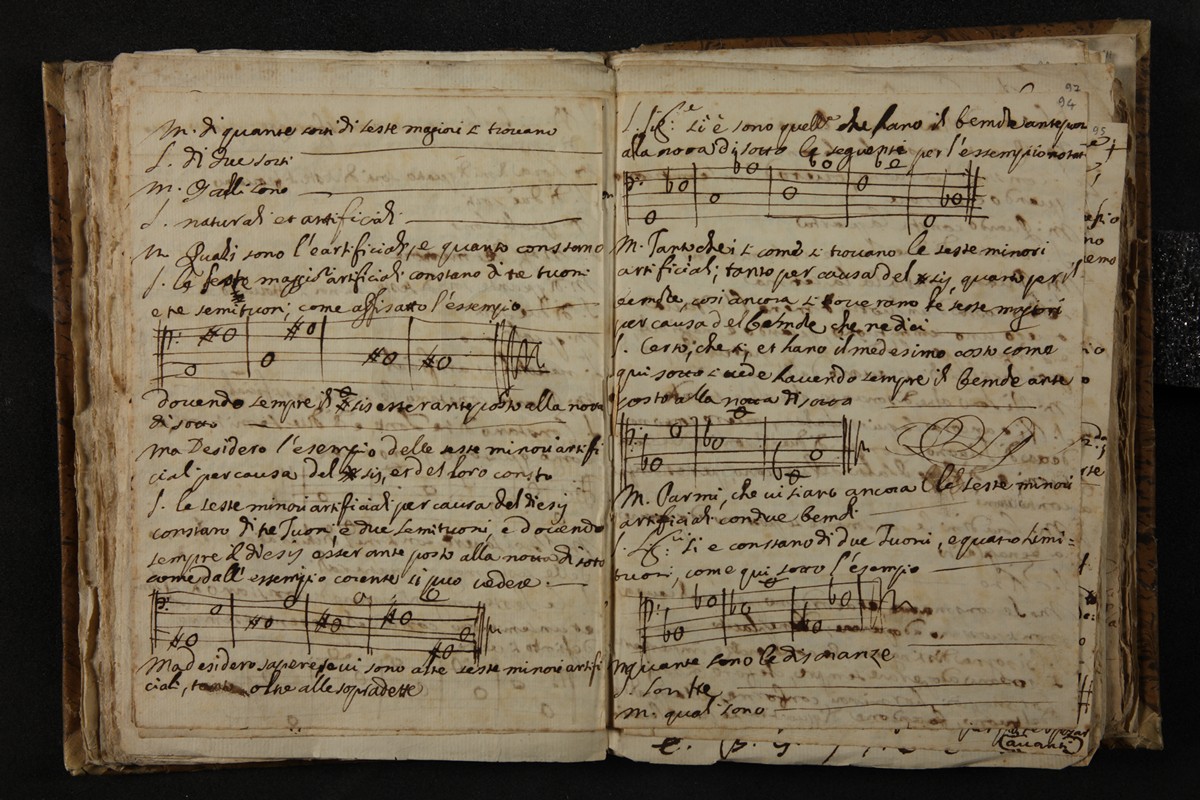 M. di quante sorti di seste magiori si trovano
S. di due sorti
M. Qualli sono
S. naturali et artificiali
M. Quali sono l'e artificiali, e quanto constano
S. le seste maggiori artificiali constano di tre tuoni
e tre semituoni, come assisatto l'essempio
dovendo sempre il sis esser ante posto alla nota
di sotto
Ma Desidero l'esempio delle seste minori artifi
ciali per causa del sis, et del loro consto
S. le seste minori artificiali per causa del diesis
constano di tre Tuoni e due semituoni, e dovendo
sempre il diesis esser ante posto alla notta di soto
come dall'essempio corente si puo vedere.
Ma desidero sapere se vi sono altre seste minori artifi
ciali, oltre alle sopradette
92
94
S. si è sono quelle che hano il bemole antepos
alla nota di sotto la seguente per l'essempio notat
M. Tanto che si come si trovano le seste minori
artificiali; tanto per causa del sis, quanto per il
bemole, così ancora si troverano le seste magiori
per causa del bemole che ne dici
S. Certo, che si, et hano il medesimo costo come
qui sotto si vede havendo sempre il bemole ante
posto alla nota di sotto
M. Parmi, che vi siano ancora le seste minori
artificiali con due bemoli
S. si e constano di due Tuoni, e quatro simi=
tuoni, come qui sotto l'esempio
M quante sono le disonanze
S. son tre
M. quali sono
(avanti)
95